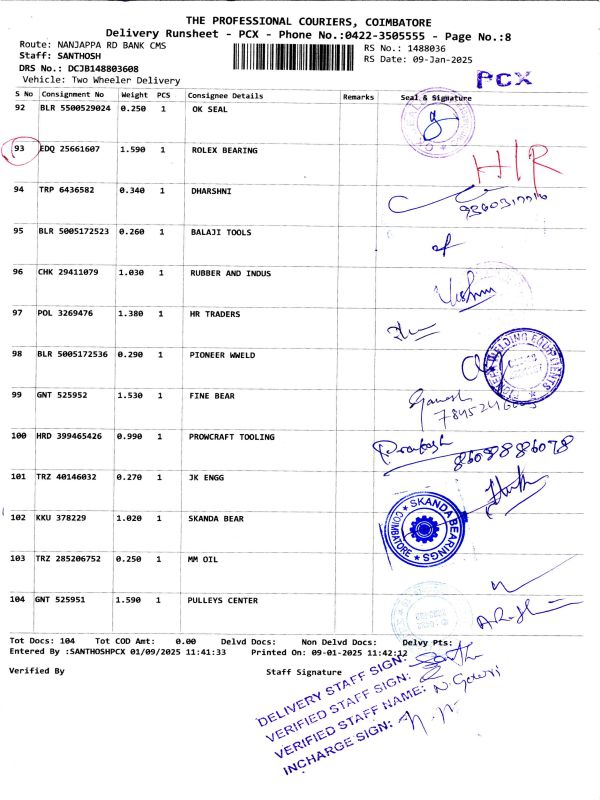 THE PROFESSIONAL COURIERS, COIMBATORE
Delivery Runsheet - PCX - Phone No.:0422-3505555 - Page No.:8
Route: NANJAPPA RD BANK CMS
RS No.: 1488036
Staff: SANTHOSH
RS Date: 09-Jan-2025
DRS No.: DCJB148803608
Vehicle: Two Wheeler Delivery
PCX
S No Consignment No Weight PCS Consignee Details Remarks Seal & Signature
92 BLR 5500529024 0.250 1 OK SEAL
93 EDQ 25661607 1.590 1 ROLEX BEARING HIR
94 TRP 6436582 0.340 1 DHARSHNI
95 BLR 5005172523 0.260 1 BALAJI TOOLS
96 CHK 29411079 1.030 1 RUBBER AND INDUS
97 POL 3269476 1.380 1 HR TRADERS
98 BLR 5005172536 0.290 1 PIONEER WWELD
99 GNT 525952 1.530 1 FINE BEAR Ganesh
100 HRD 399465426 0.990 1 PROWCRAFT TOOLING Prakash 8608886078
101 TRZ 40146032 0.270 1 JK ENGG
102 KKU 378229 1.020 1 SKANDA BEAR SKANDA BEARINGS COIMBATORE
103 TRZ 285206752 0.250 1 MM OIL
104 GNT 525951 1.590 1 PULLEYS CENTER
Tot Docs: 104 Tot COD Amt: 0.00 Delvd Docs: Non Delvd Docs: Delvy Pts:
Entered By :SANTHOSHPCX 01/09/2025 11:41:33 Printed On: 09-01-2025 11:42:12
Verified By Staff Signature
DELIVERY STAFF SIGN:
VERIFIED STAFF SIGN:
VERIFIED STAFF NAME: N. Gowri
INCHARGE SIGN: